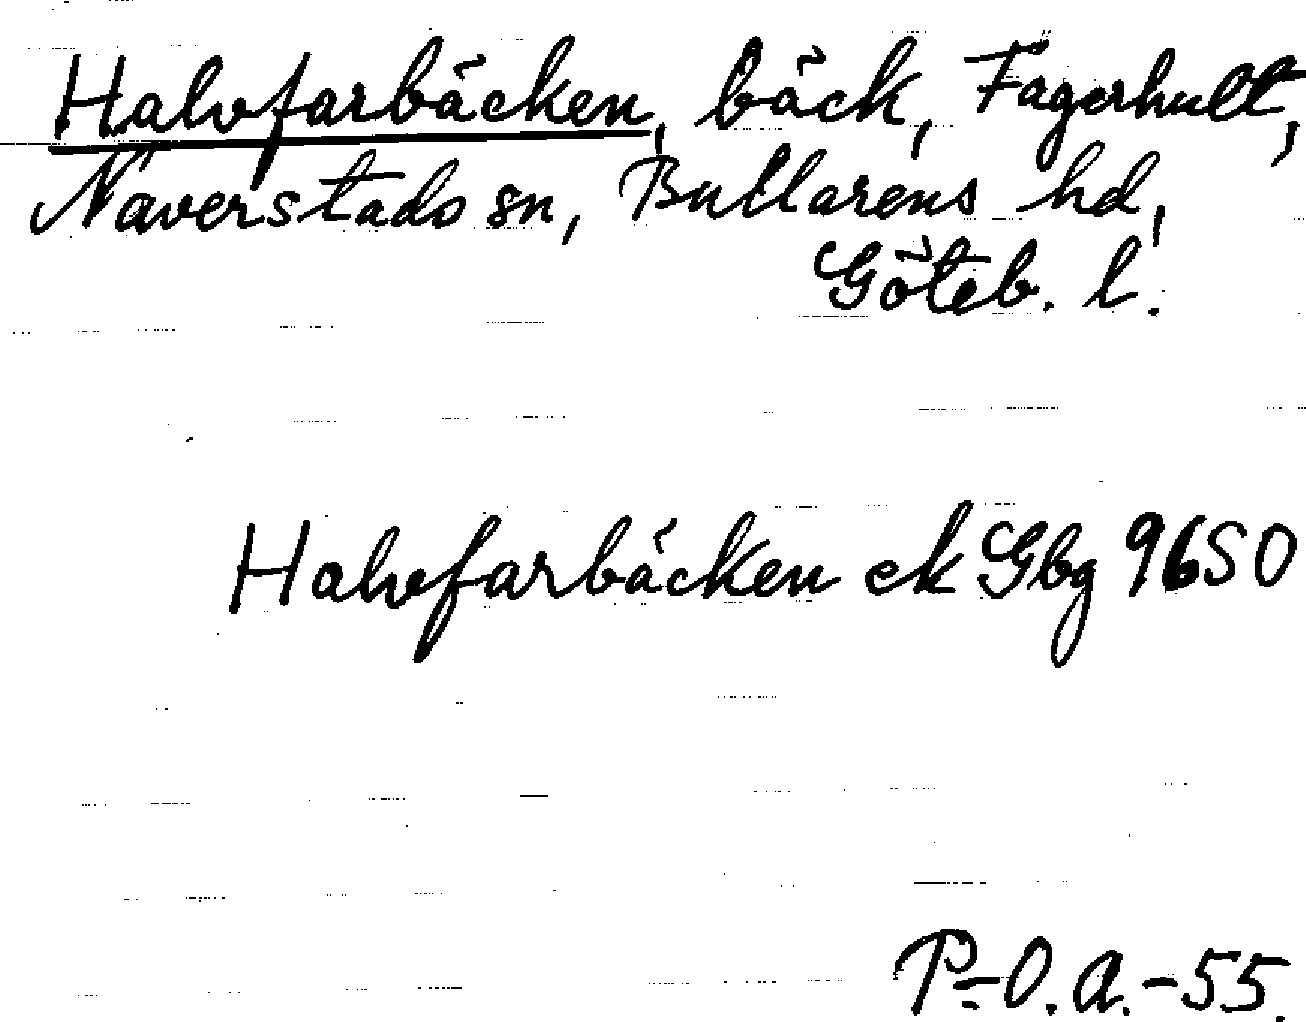 Halvfarbäcken, bäck, Fagerhult,
Naverstads sn, Bullarens hd,
Göteb. l.
Halvfarbäcken ek Gbg 9650
P-O.A.-55.